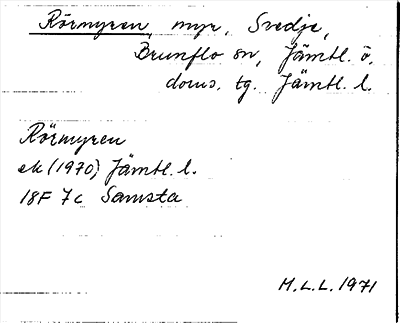 Rörmyren, myr, Svedje,
Brunflo sn, Jämtl. ö.
doms. tg. Jämtl. l.
Rörmyren
ek (1970) Jämtl. l.
18F 7c Samsta
M.L.L. 1971